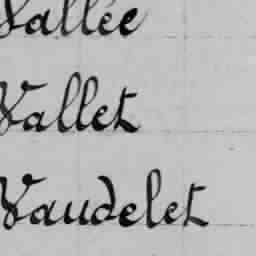 Vallée
Vallet
Vaudelet